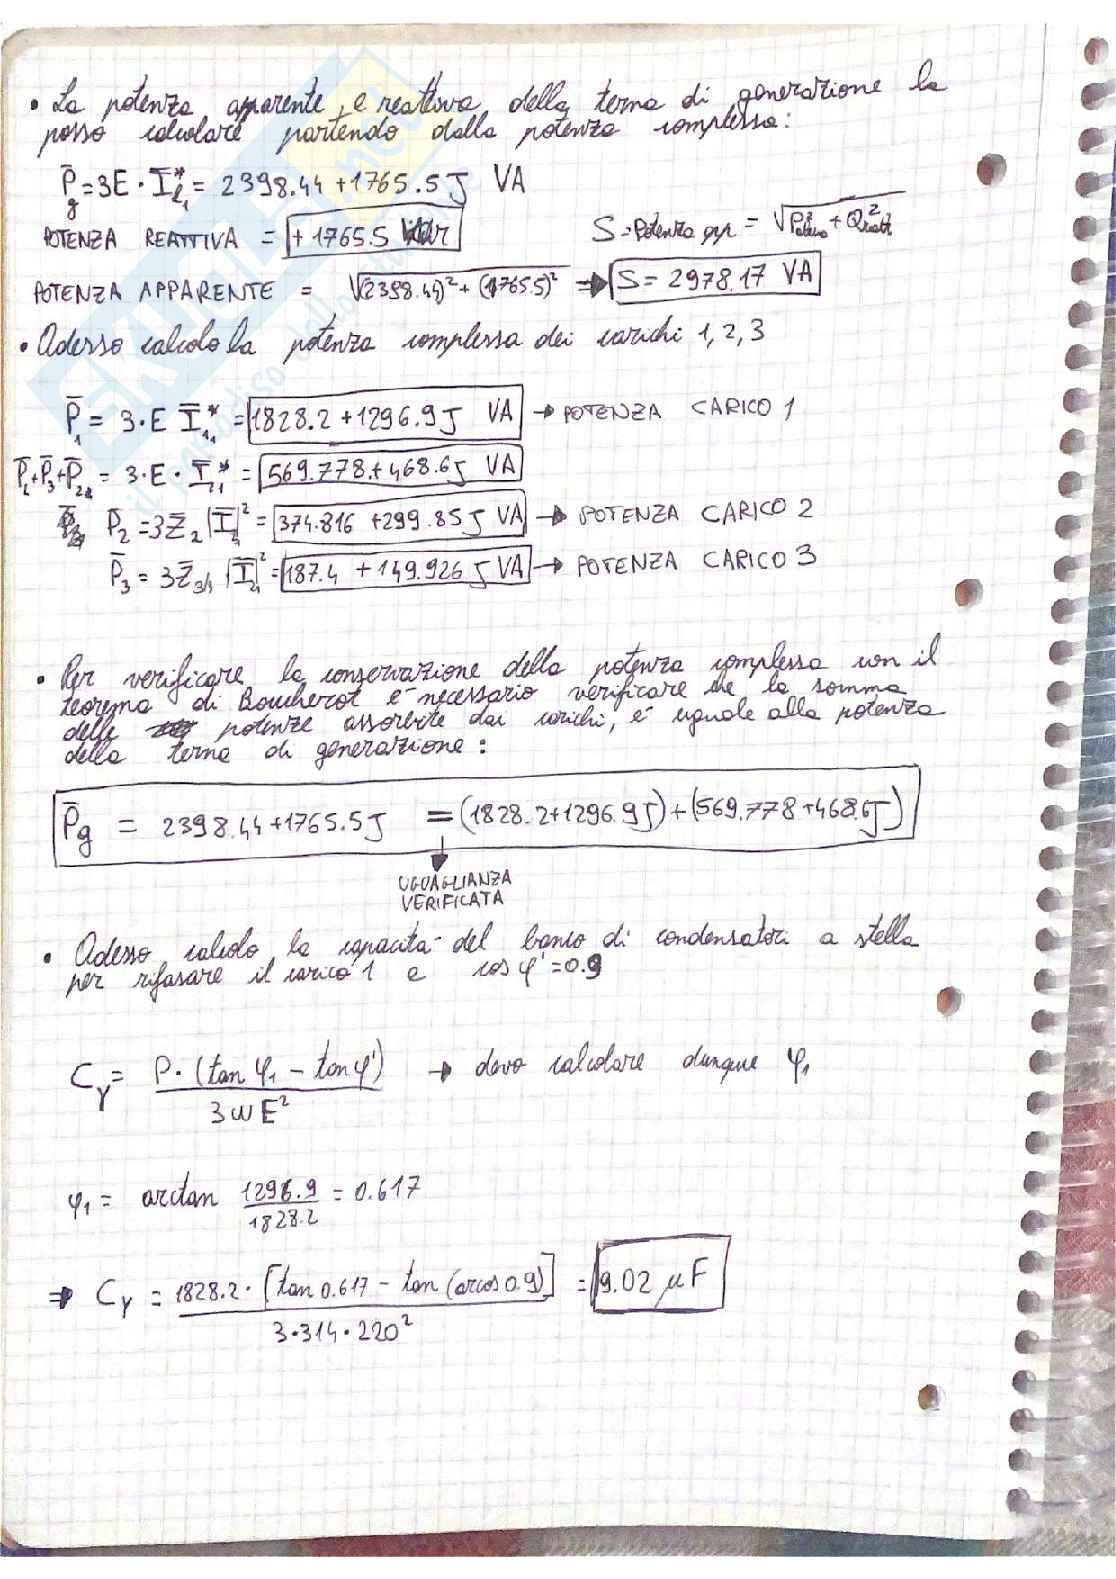 • La potenza apparente e reattiva della terna di generazione la
posso calcolare partendo dalla potenza complessa:
P̄g = 3E · Ī*ℓ1 = 2398.44 + 1765.5 J VA
POTENZA REATTIVA = + 1765.5 VAr
S = Potenza app. = √(P²attiva + Q²reatt)
POTENZA APPARENTE = √((2398.44)² + (1765.5)²) ⇒ S = 2978.17 VA
• Adesso calcolo la potenza complessa dei carichi 1, 2, 3
P̄1 = 3·E Ī*11 = 1828.2 + 1296.9 J VA → POTENZA CARICO 1
P̄2+P̄3+P̄2ℓ = 3·E· Ī*21 = 569.778 + 468.6 J VA
P̄2 = 3Z̄2 |Ī|² = 374.816 + 299.85 J VA → POTENZA CARICO 2
P̄3 = 3Z̄3λ |Ī|² = 187.4 + 149.926 J VA → POTENZA CARICO 3
• Per verificare la conservazione della potenza complessa con il
teorema di Boucherot è necessario verificare che la somma
delle potenze assorbite dai carichi, è uguale alla potenza
della terna di generazione:
P̄g = 2398.44 + 1765.5 J = (1828.2 + 1296.9 J) + (569.778 + 468.6 J)
UGUAGLIANZA
VERIFICATA
• Adesso calcolo la capacità del banco di condensatori a stella
per rifasare il carico 1 a cos φ' = 0.9
CY = P · (tan φ1 − tan φ') / 3ωE² → devo calcolare dunque φ1
φ1 = arctan 1296.9 / 1828.2 = 0.617
⇒ CY = 1828.2 · [tan 0.617 − tan (arcos 0.9)] / 3·314·220² = 9.02 μF